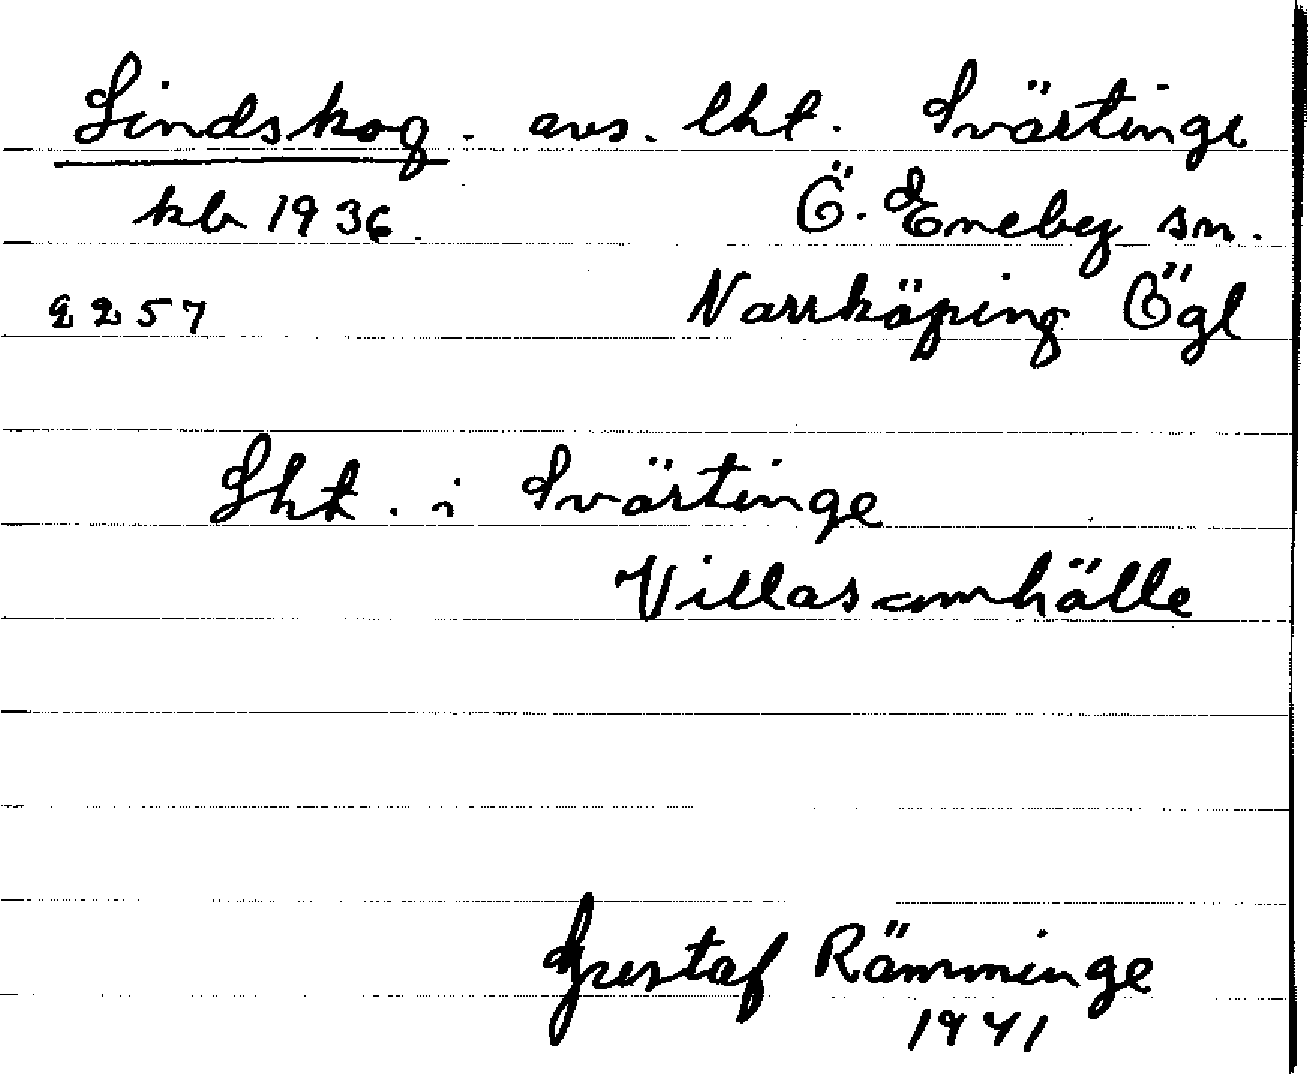 Lindskog. avs. lht. Svärtinge
kb 1936. Ö. Eneby sn.
2257 Norrköping Ögl
Lht. i Svärtinge
Villasamhälle
Gustaf Rämminge
1941